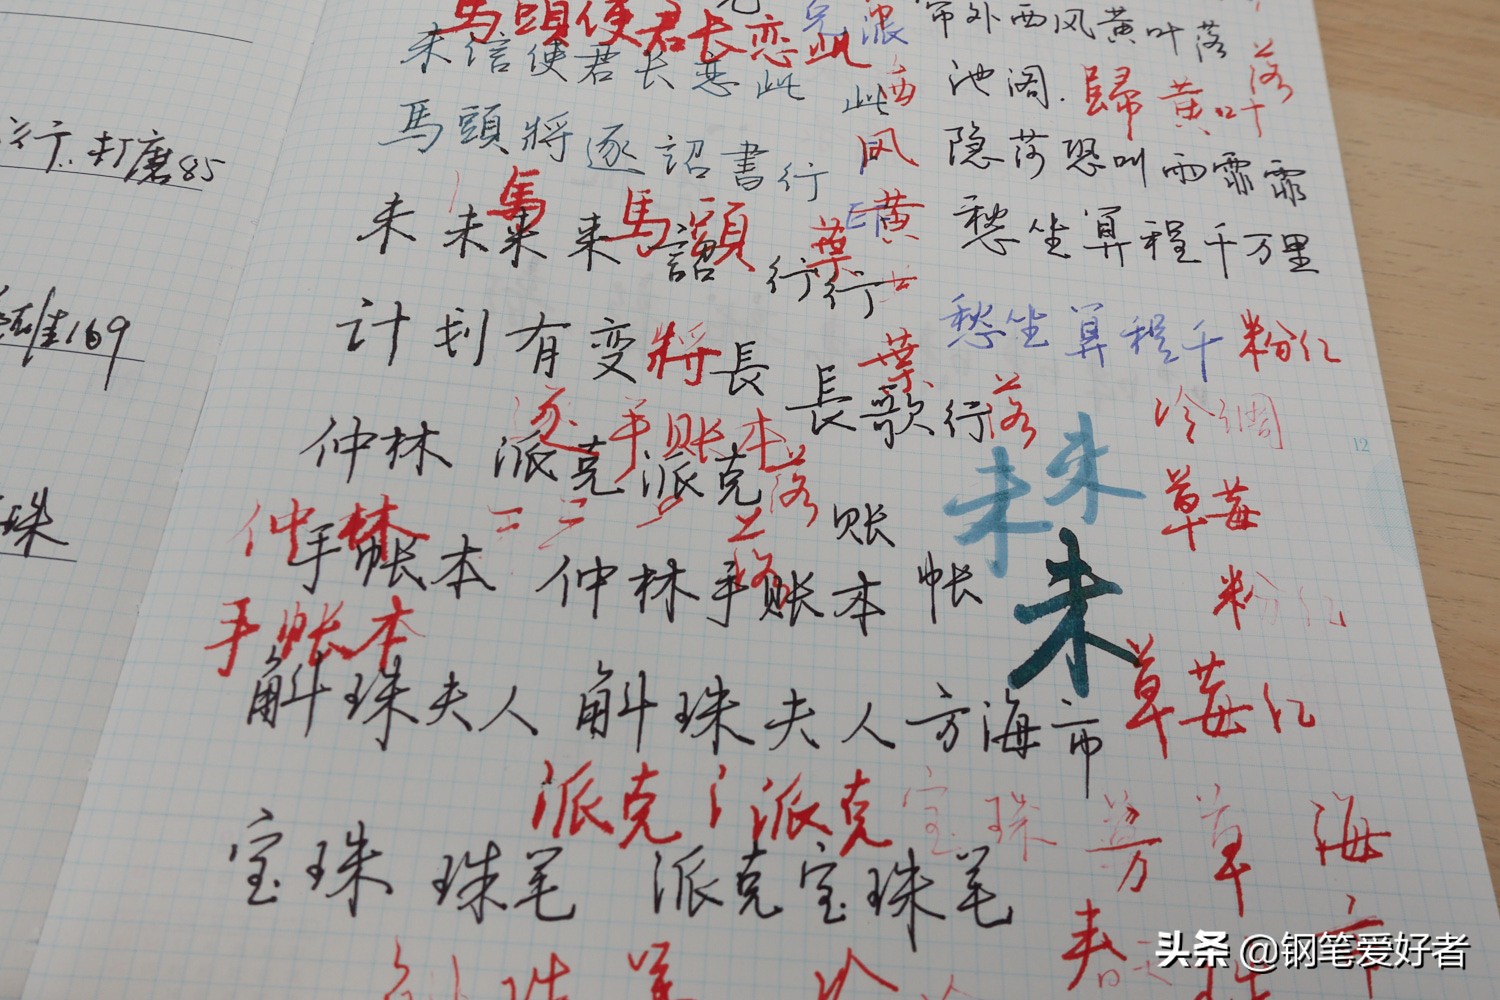 馬頭使君长恋此
未信使君长恋此
馬頭將逐詔書行
未 未 来 来 馬頭 詔
馬
行行
计划有变 將 長
長歌行
仲林 派克 派克
逐 手账本
仲林
手帐本 仲林手账本 帐
账
手账本
斛珠夫人 斛珠夫人 方海市
派克 派克 宝珠
宝珠 珠笔 派克宝珠笔
帘外西风黄叶落
池阁.
歸 黄叶落
隐 恐叫雨霏霏
愁坐算程千万里
愁坐算程千 粉红
浪
此
西风黄
葉
葉
落
落
落
冷
草莓
粉红
草莓红
未 未
未
草 海市
春
12
行.打磨85
169
珠
头条 @钢笔爱好者